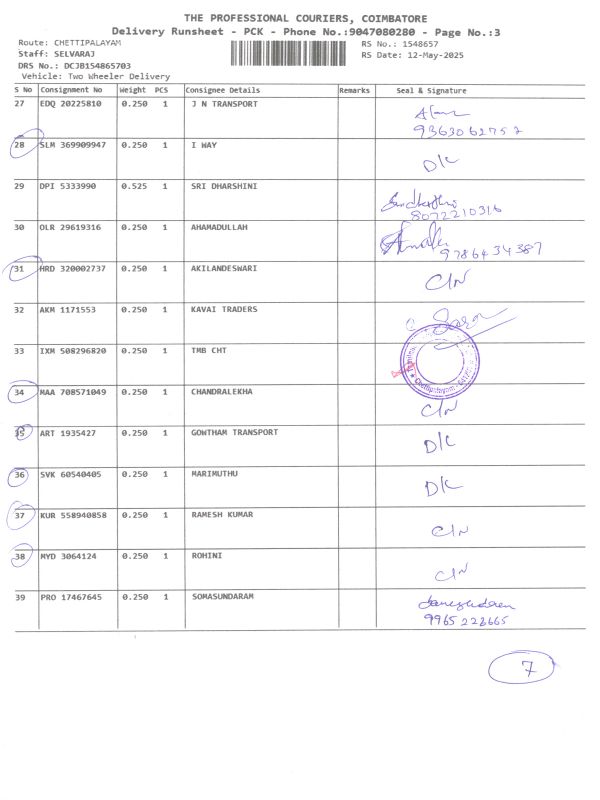 THE PROFESSIONAL COURIERS, COIMBATORE
Delivery Runsheet - PCK - Phone No.:9047080280 - Page No.:3
Route: CHETTIPALAYAM RS No.: 1548657
Staff: SELVARAJ RS Date: 12-May-2025
DRS No.: DCJB154865703
Vehicle: Two Wheeler Delivery
S No Consignment No Weight PCS Consignee Details Remarks Seal & Signature
27 EDQ 20225810 0.250 1 J N TRANSPORT
9363062752
28 SLM 369909947 0.250 1 I WAY D/C
29 DPI 5333990 0.525 1 SRI DHARSHINI
8072210316
30 OLR 29619316 0.250 1 AHAMADULLAH
9786434387
31 HRD 320002737 0.250 1 AKILANDESWARI C/N
32 AKM 1171553 0.250 1 KAVAI TRADERS
33 IXM 508296820 0.250 1 TMB CHT
34 MAA 708571049 0.250 1 CHANDRALEKHA C/N
35 ART 1935427 0.250 1 GOWTHAM TRANSPORT D/C
36 SVK 60540405 0.250 1 MARIMUTHU D/C
37 KUR 558940858 0.250 1 RAMESH KUMAR C/N
38 MYD 3064124 0.250 1 ROHINI C/N
39 PRO 17467645 0.250 1 SOMASUNDARAM
9965228665
7